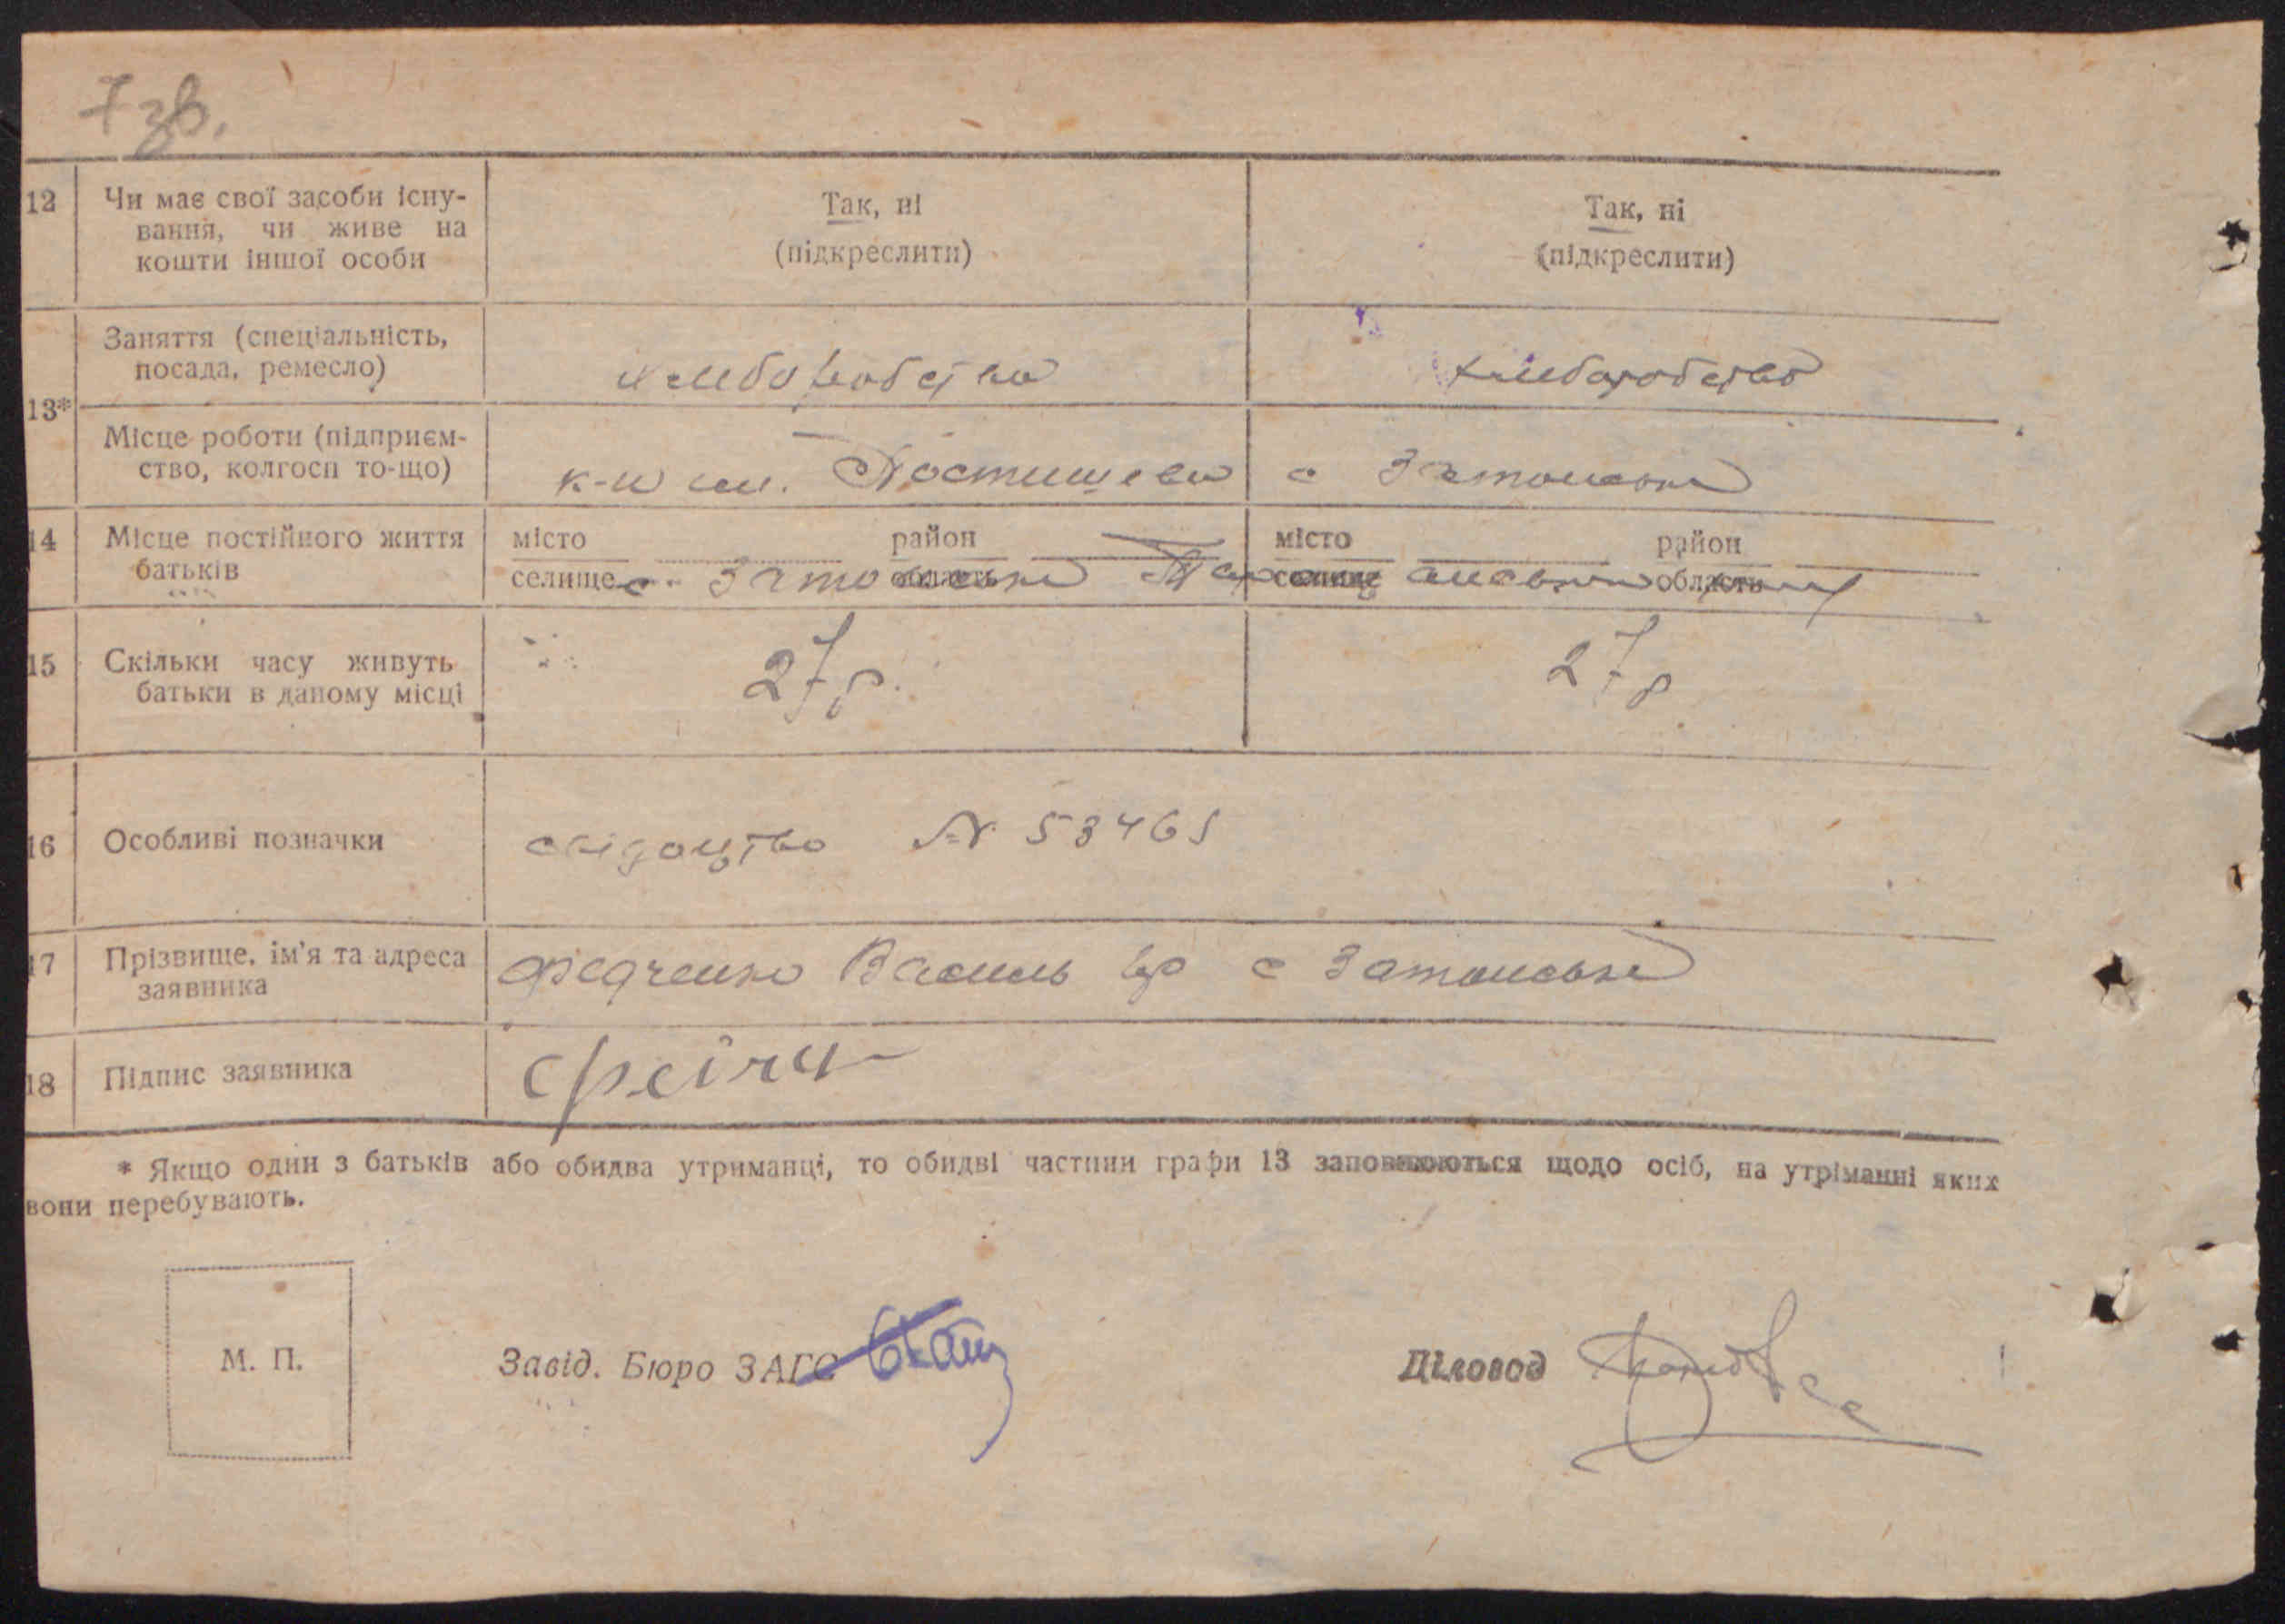 7 зв.
12 Чи має свої засоби існу- Так, ні Так, ні
вання, чи живе на (підкреслити) (підкреслити)
кошти іншої особи
Заняття (спеціальність,
посада, ремесло) хлеборобство хлеборобство
13*
Місце роботи (підприєм-
ство, колгосп то-що) к-п ім. Постишева с Затонська
14 Місце постійного життя місто район місто район
батьків селище с. Затонська область селище область
15 Скільки часу живуть 27 р. 27 р
батьки в даному місці
16 Особливі позначки свідоцтво № 53465
17 Прізвище, ім'я та адреса Федченко Василь с Затонська
заявника
18 Підпис заявника
* Якщо один з батьків або обидва утриманці, то обидві частини графи 13 заповнюються щодо осіб, на утріманні яких
вони перебувають.
М. П. Завід. Бюро ЗАГС Діловод